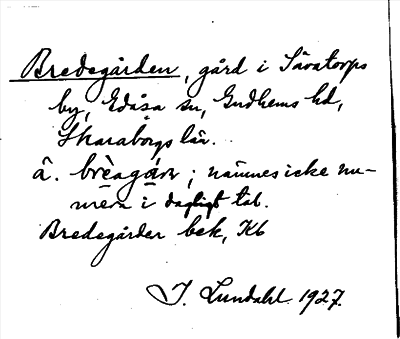 Bredegården, gård i Såvatorps
by, Edåsa sn, Gudhems hd,
Skaraborgs län.
â. brèagán; nämnes icke nu-
mera i dagligt tal.
Bredegården bek, Kb
J. Lundahl 1927.